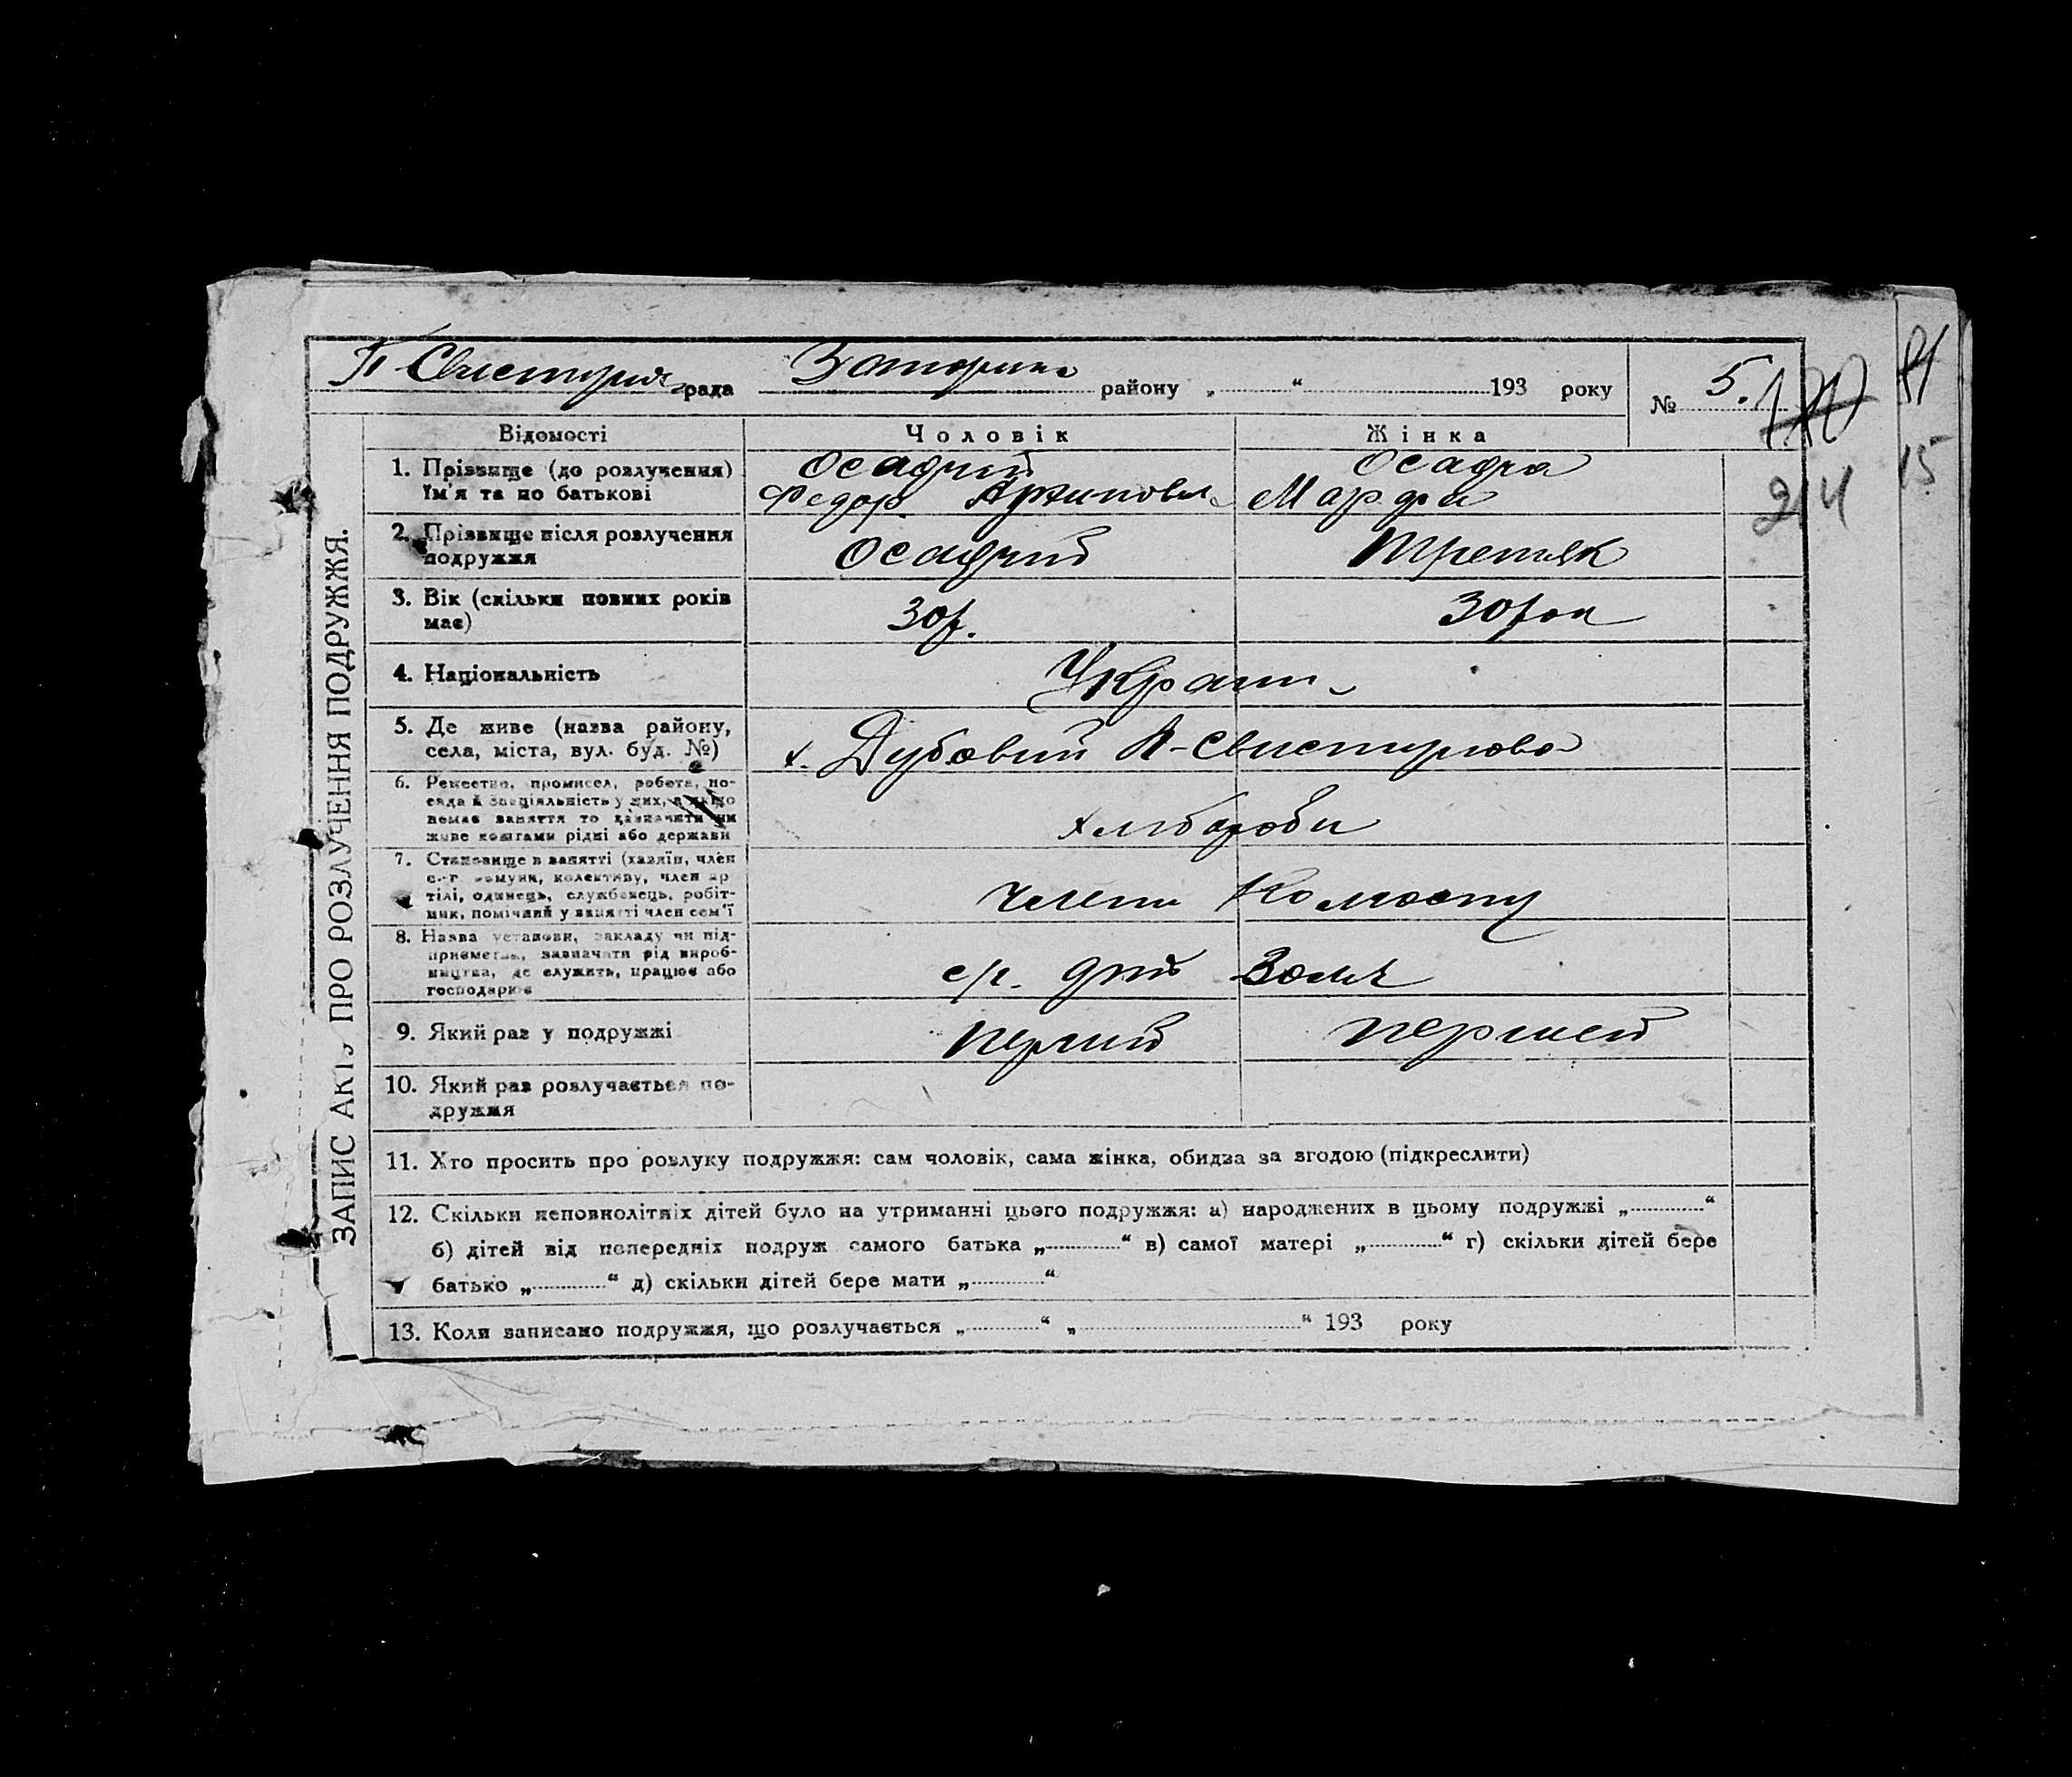 П Свистунів рада Запорізьк району „ “ 193 року № 5.
170
91
15
214
ЗАПИС АКТУ ПРО РОЗЛУЧЕННЯ ПОДРУЖЖЯ.
Відомості Чоловік Жінка
1. Прізвище (до розлучення) Ім'я та по батькові
Осадчий Осадча
Федор Марфа
2. Прізвище після розлучення подружжя
Осадчий Третьяк
3. Вік (скільки повних років має)
30р. 30рок
4. Національність
Украин
5. Де живе (назва району, села, міста, вул. буд. №)
х. Дубовий П-Свистунова
6. Ремество, промисел, робота, посада й спеціяльність у них, а якщо
немає заняття то зазначити чим
живе коштами рідні або держави
хліборобы
7. Становище в занятті (хазяїн, член
с.-г. комуни, колективу, член ар
тілі, одинець, службовець, робіт-
ник, помічний у занятті член сем'ї
члени Колгоспу
8. Назва установи, закладу чи під-
приємства, зазначити рід вироб-
ництва, де служить, працює або
господарює
с/г.
9. Який раз у подружжі
перший першей
10. Який раз розлучається по-
дружжя
11. Хто просить про розлуку подружжя: сам чоловік, сама жінка, обидва за згодою (підкреслити)
12. Скільки неповнолітніх дітей було на утриманні цього подружжя: а) народжених в цьому подружжі „ “
б) дітей від попередніх подруж самого батька „ “ в) самої матері „ “ г) скільки дітей бере
батько „ “ д) скільки дітей бере мати „ “
13. Коли записано подружжя, що розлучається „ “ „ “ 193 року